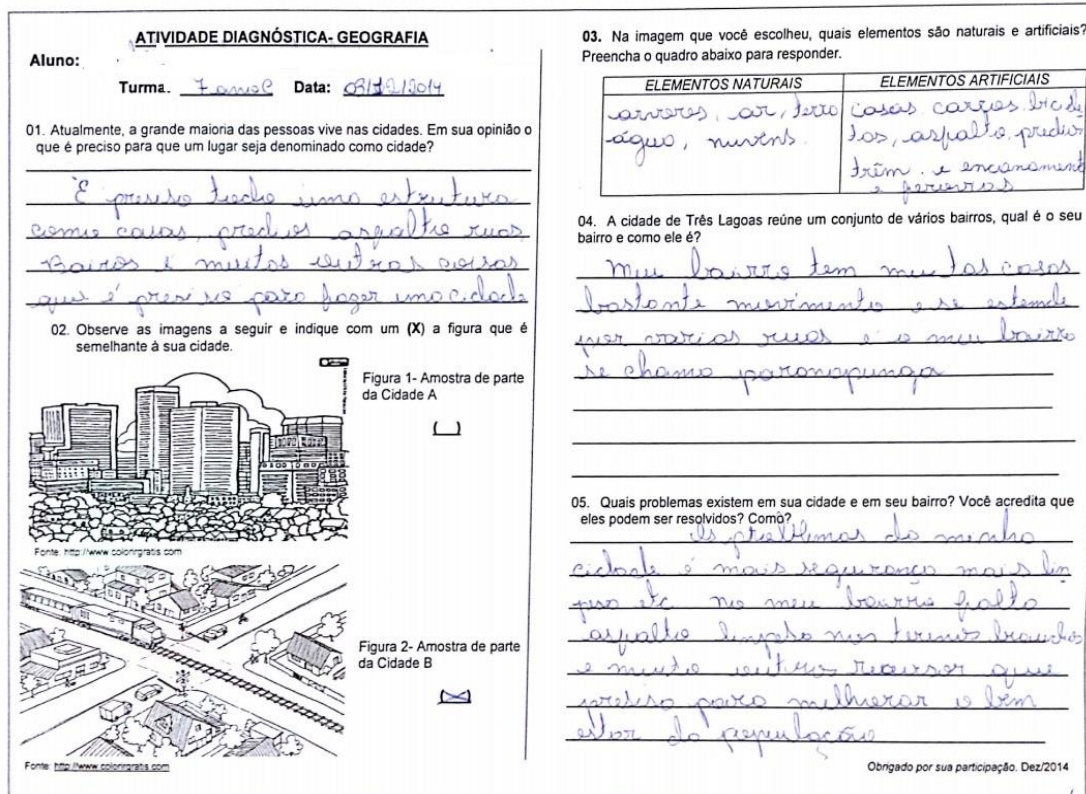 ATIVIDADE DIAGNÓSTICA- GEOGRAFIA
Aluno:
Turma. 7 ano C Data: 03/12/2014
01. Atualmente, a grande maioria das pessoas vive nas cidades. Em sua opinião o
que é preciso para que um lugar seja denominado como cidade?
É preciso uma estrutura
como casas, predios asfaltro ruas
Bairos e muitos outras coisas
que é presiso para fazer uma cidade
02. Observe as imagens a seguir e indique com um (X) a figura que é
semelhante à sua cidade.
Figura 1- Amostra de parte
da Cidade A
( )
Fonte: http://www.colorirgratis.com
Figura 2- Amostra de parte
da Cidade B
(X)
Fonte: http://www.colorirgratis.com
03. Na imagem que você escolheu, quais elementos são naturais e artificiais?
Preencha o quadro abaixo para responder.
ELEMENTOS NATURAIS ELEMENTOS ARTIFICIAIS
arvores, ar, terra casas carros bicicle
água, nuvens. tas, asfalto, predios
trêm. e encanament
e
04. A cidade de Três Lagoas reúne um conjunto de vários bairros, qual é o seu
bairro e como ele é?
Meu bairro tem muitas casas
bastante movimento e se estende
por varias ruas e o meu bairro
se chama paranapunga
05. Quais problemas existem em sua cidade e em seu bairro? Você acredita que
eles podem ser resolvidos? Como?
Os problemas da minha
cidade é mais segurança mais lin
pesa etc no meu bairro falta
asfalto linpesa nos terrenos
e muito outros recursos que
presisa para melhorar o bem
estar da população
Obrigado por sua participação. Dez/2014